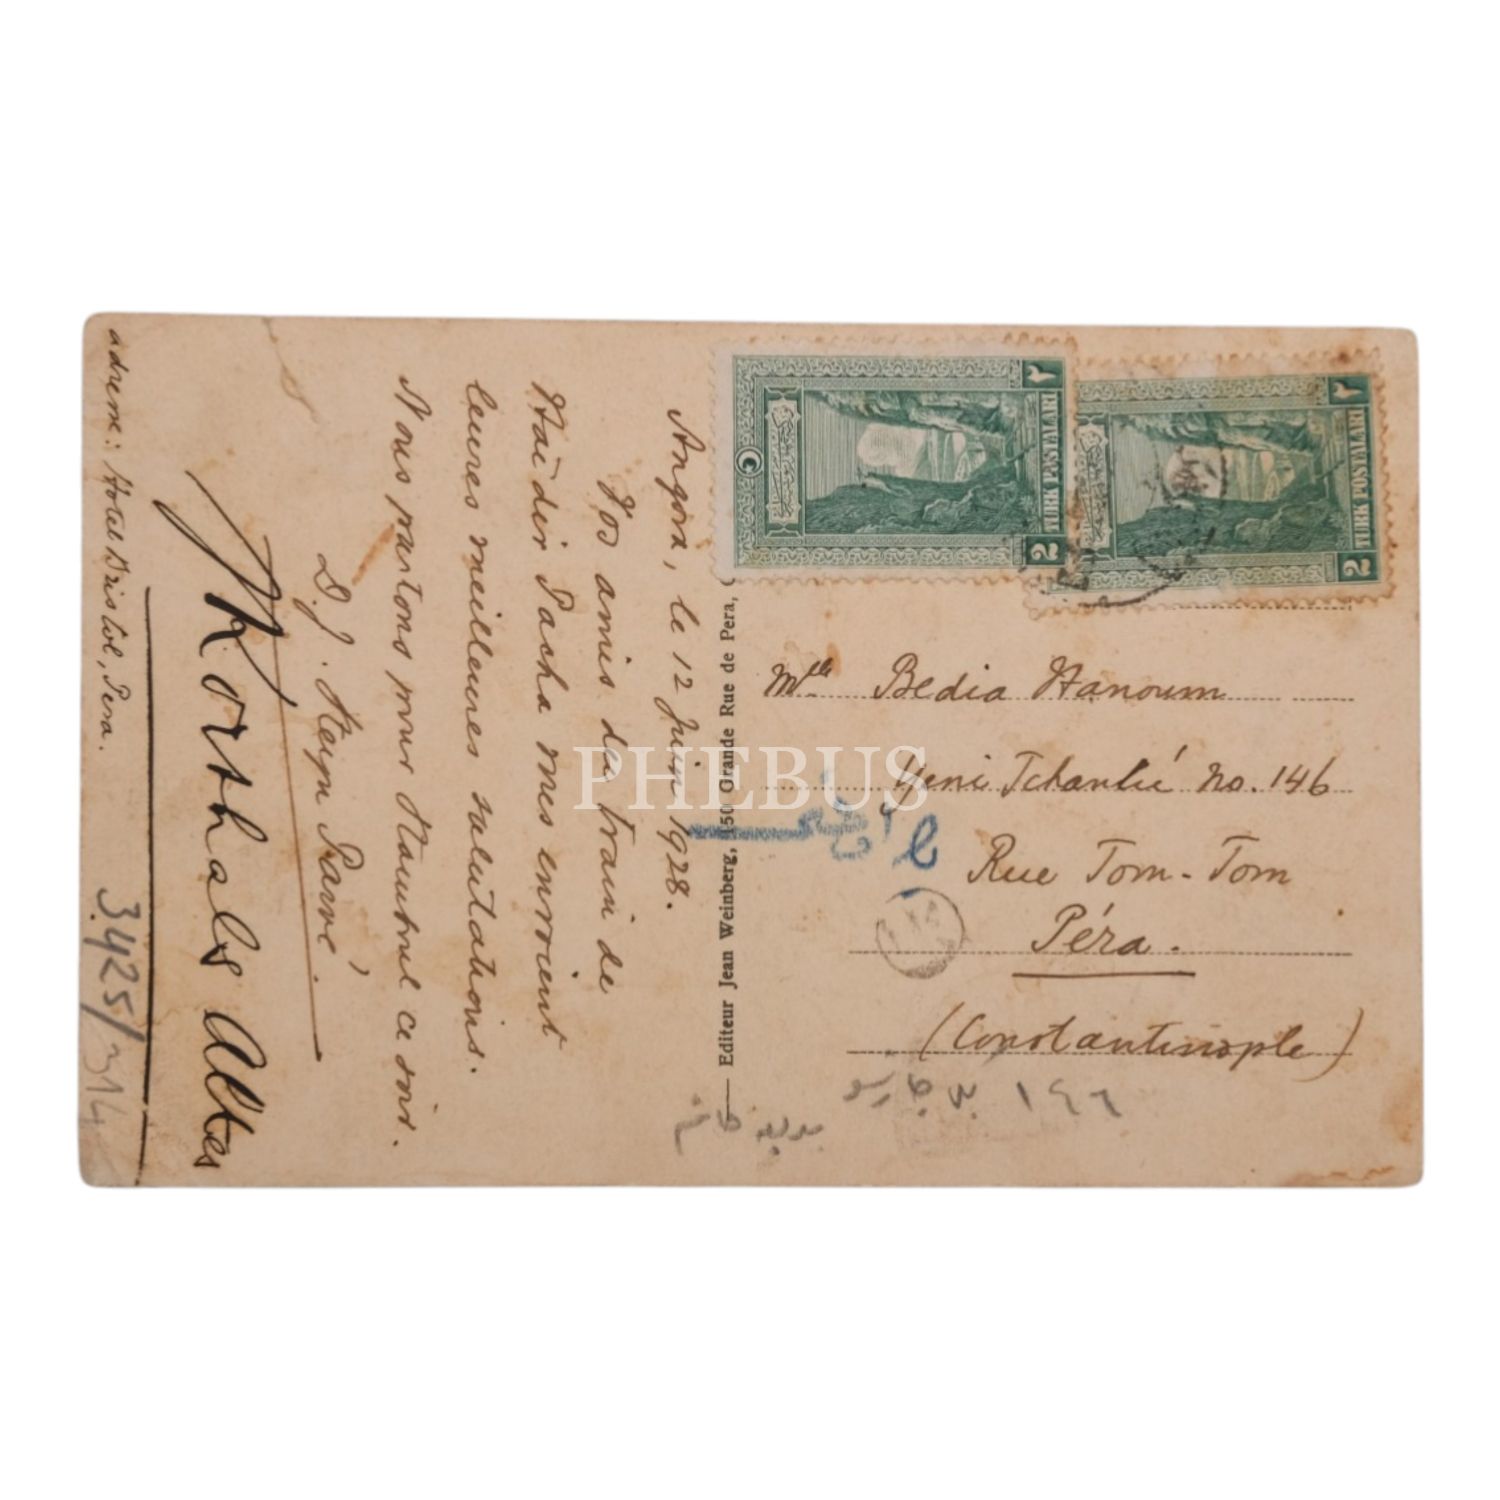 Angora, le 12 Juin 1928.
Vos amis du train de
Haïder Pacha mes envoient
leures meilleures salutations.
Nous partons pour Stambul ce soir.
Korthals Altes
adresse: Hotel Bristol, Pera.
3425/314
Editeur Jean Weinberg, 150 Grande Rue de Pera,
TURK POSTALARI
2
٢
TURK POSTALARI
2
٢
Mlle Bedia Hanoum
Yeni Tcharchi No. 146
Rue Tom-Tom
Péra.
(Constantinople)
١٤٦
PHEBUS